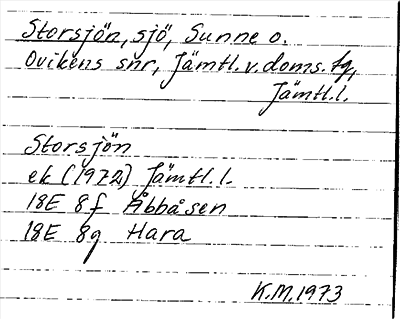 Storsjön, sjö, Sunne o.
Ovikens snr, Jämtl. v. doms. tg,
Jämtl.l.
Storsjön
ek (1972) Jämtl.l.
18E 8f Åbbåsen
18E 8g Hara
K.M. 1973